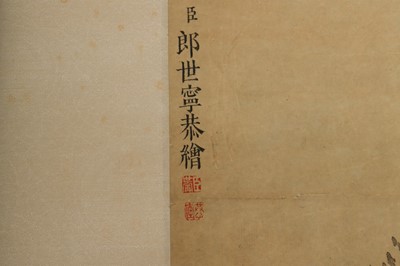 臣
郎世寧恭繪